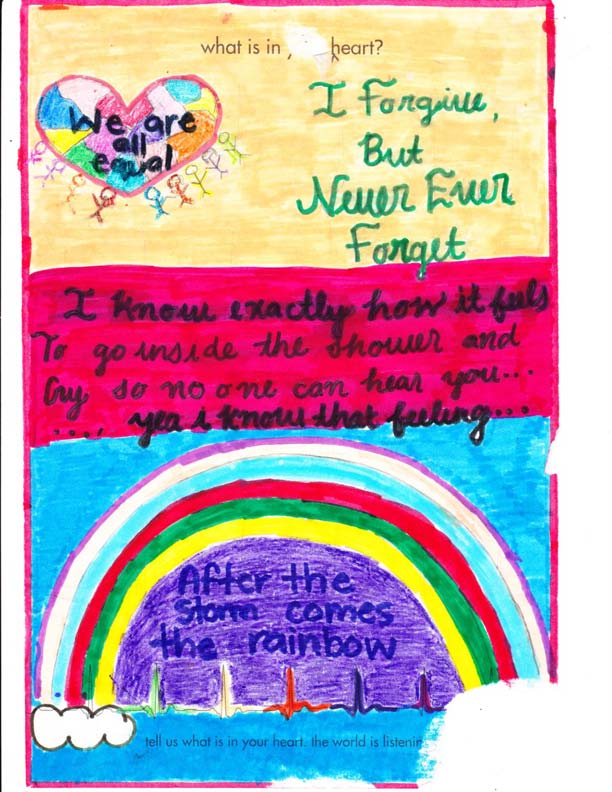 what is in heart?
We are
all
equal
I Forgive,
But
Never Ever
Forget
I know exactly how it feels
To go inside the shower and
Cry so no one can hear you...
..., yea i know that feeling...
After the
storm comes
the rainbow
tell us what is in your heart. the world is listenin